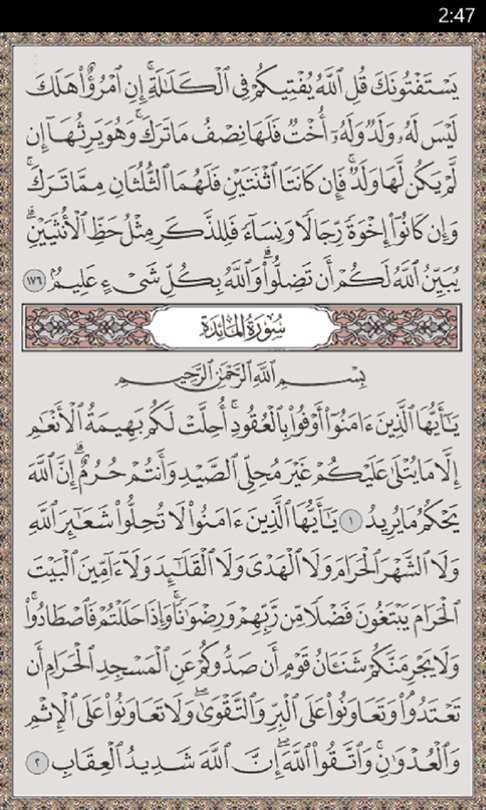 2:47
يَسْتَفْتُونَكَ قُلِ ٱللَّهُ يُفْتِيكُمْ فِى ٱلْكَلَـٰلَةِ ۚ إِنِ ٱمْرُؤٌا۟ هَلَكَ
لَيْسَ لَهُۥ وَلَدٌ وَلَهُۥٓ أُخْتٌ فَلَهَا نِصْفُ مَا تَرَكَ ۚ وَهُوَ يَرِثُهَآ إِن
لَّمْ يَكُن لَّهَا وَلَدٌ ۚ فَإِن كَانَتَا ٱثْنَتَيْنِ فَلَهُمَا ٱلثُّلُثَانِ مِمَّا تَرَكَ ۚ
وَإِن كَانُوٓا۟ إِخْوَةً رِّجَالًا وَنِسَآءً فَلِلذَّكَرِ مِثْلُ حَظِّ ٱلْأُنثَيَيْنِ ۗ
يُبَيِّنُ ٱللَّهُ لَكُمْ أَن تَضِلُّوا۟ ۗ وَٱللَّهُ بِكُلِّ شَىْءٍ عَلِيمٌۢ ١٧٦
سُورَةُ المَائِدَة
بِسْمِ ٱللَّهِ ٱلرَّحْمَـٰنِ ٱلرَّحِيمِ
يَـٰٓأَيُّهَا ٱلَّذِينَ ءَامَنُوٓا۟ أَوْفُوا۟ بِٱلْعُقُودِ ۚ أُحِلَّتْ لَكُم بَهِيمَةُ ٱلْأَنْعَـٰمِ
إِلَّا مَا يُتْلَىٰ عَلَيْكُمْ غَيْرَ مُحِلِّى ٱلصَّيْدِ وَأَنتُمْ حُرُمٌ ۗ إِنَّ ٱللَّهَ
يَحْكُمُ مَا يُرِيدُ ١ يَـٰٓأَيُّهَا ٱلَّذِينَ ءَامَنُوا۟ لَا تُحِلُّوا۟ شَعَـٰٓئِرَ ٱللَّهِ
وَلَا ٱلشَّهْرَ ٱلْحَرَامَ وَلَا ٱلْهَدْىَ وَلَا ٱلْقَلَـٰٓئِدَ وَلَآ ءَآمِّينَ ٱلْبَيْتَ
ٱلْحَرَامَ يَبْتَغُونَ فَضْلًا مِّن رَّبِّهِمْ وَرِضْوَٰنًا ۚ وَإِذَا حَلَلْتُمْ فَٱصْطَادُوا۟ ۚ
وَلَا يَجْرِمَنَّكُمْ شَنَـَٔانُ قَوْمٍ أَن صَدُّوكُمْ عَنِ ٱلْمَسْجِدِ ٱلْحَرَامِ أَن
تَعْتَدُوا۟ ۘ وَتَعَاوَنُوا۟ عَلَى ٱلْبِرِّ وَٱلتَّقْوَىٰ ۖ وَلَا تَعَاوَنُوا۟ عَلَى ٱلْإِثْمِ
وَٱلْعُدْوَٰنِ ۚ وَٱتَّقُوا۟ ٱللَّهَ ۖ إِنَّ ٱللَّهَ شَدِيدُ ٱلْعِقَابِ ٢